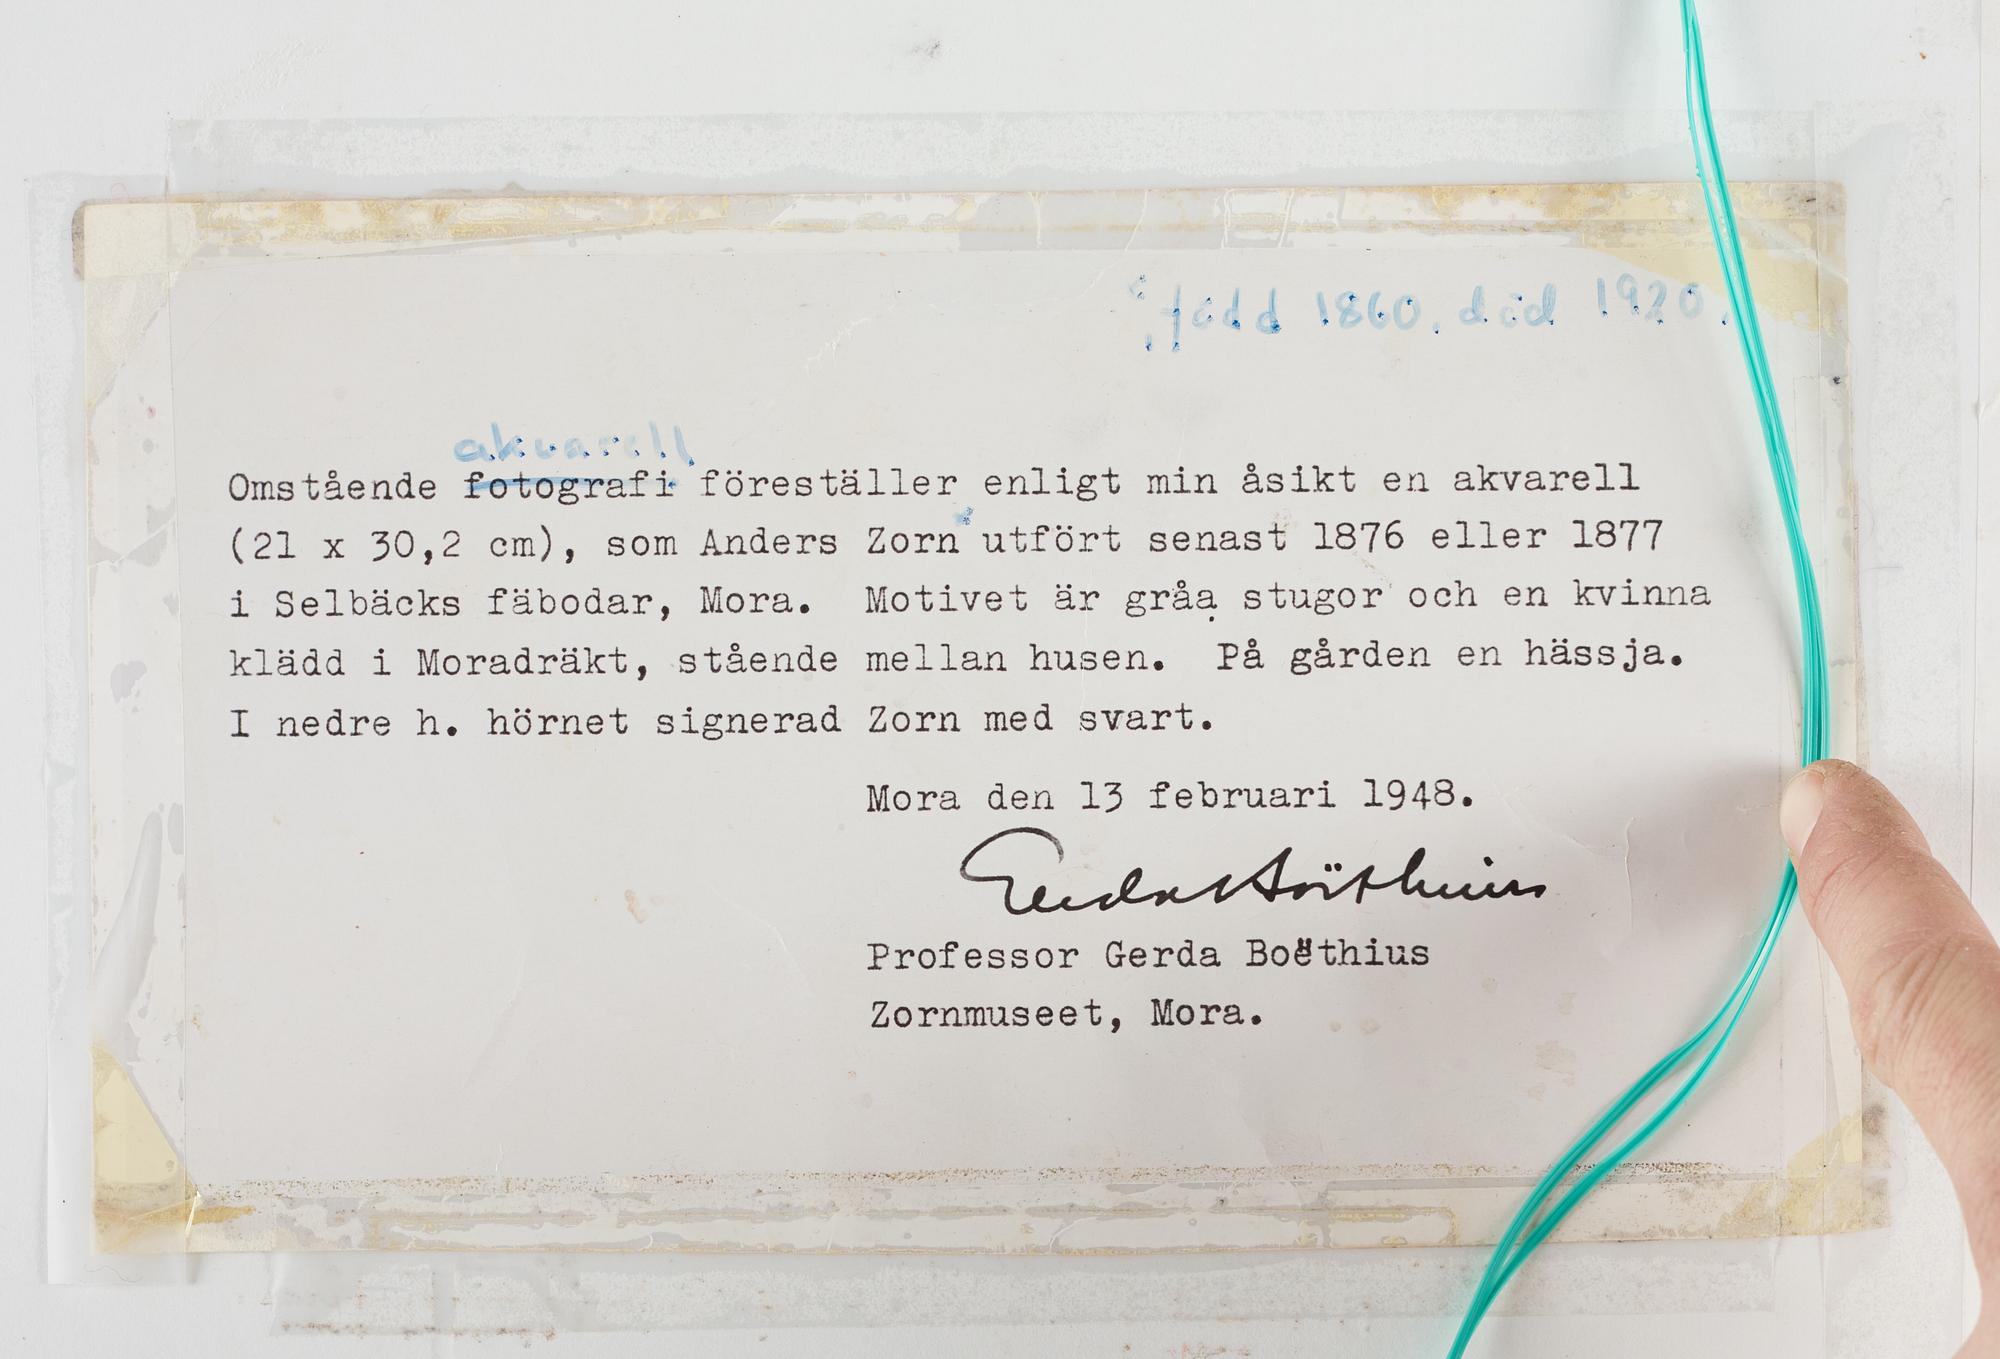 född 1860. död 1920.
akvarell
Omstående fotografi föreställer enligt min åsikt en akvarell
(21 x 30,2 cm), som Anders Zorn utfört senast 1876 eller 1877
i Selbäcks fäbodar, Mora. Motivet är gråa stugor och en kvinna
klädd i Moradräkt, stående mellan husen. På gården en hässja.
I nedre h. hörnet signerad Zorn med svart.
Mora den 13 februari 1948.
Gerda Boëthius
Professor Gerda Boëthius
Zornmuseet, Mora.